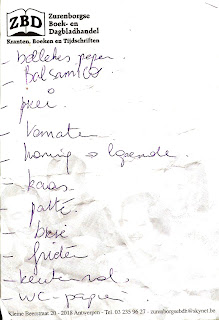 ZBD
Zurenborgse
Boek- en
Dagbladhandel
Kranten, Boeken en Tijdschriften
- bolletjes peper.
- Balsamico.
- prei.
- Tomaten
- honing
- kaas.
- patté.
- brie
- frieten
- keukenrol.
- WC-papier
Kleine Beerstraat 20 - 2018 Antwerpen - Tel. 03 235 96 27 - zurenborgsebdh@skynet.be